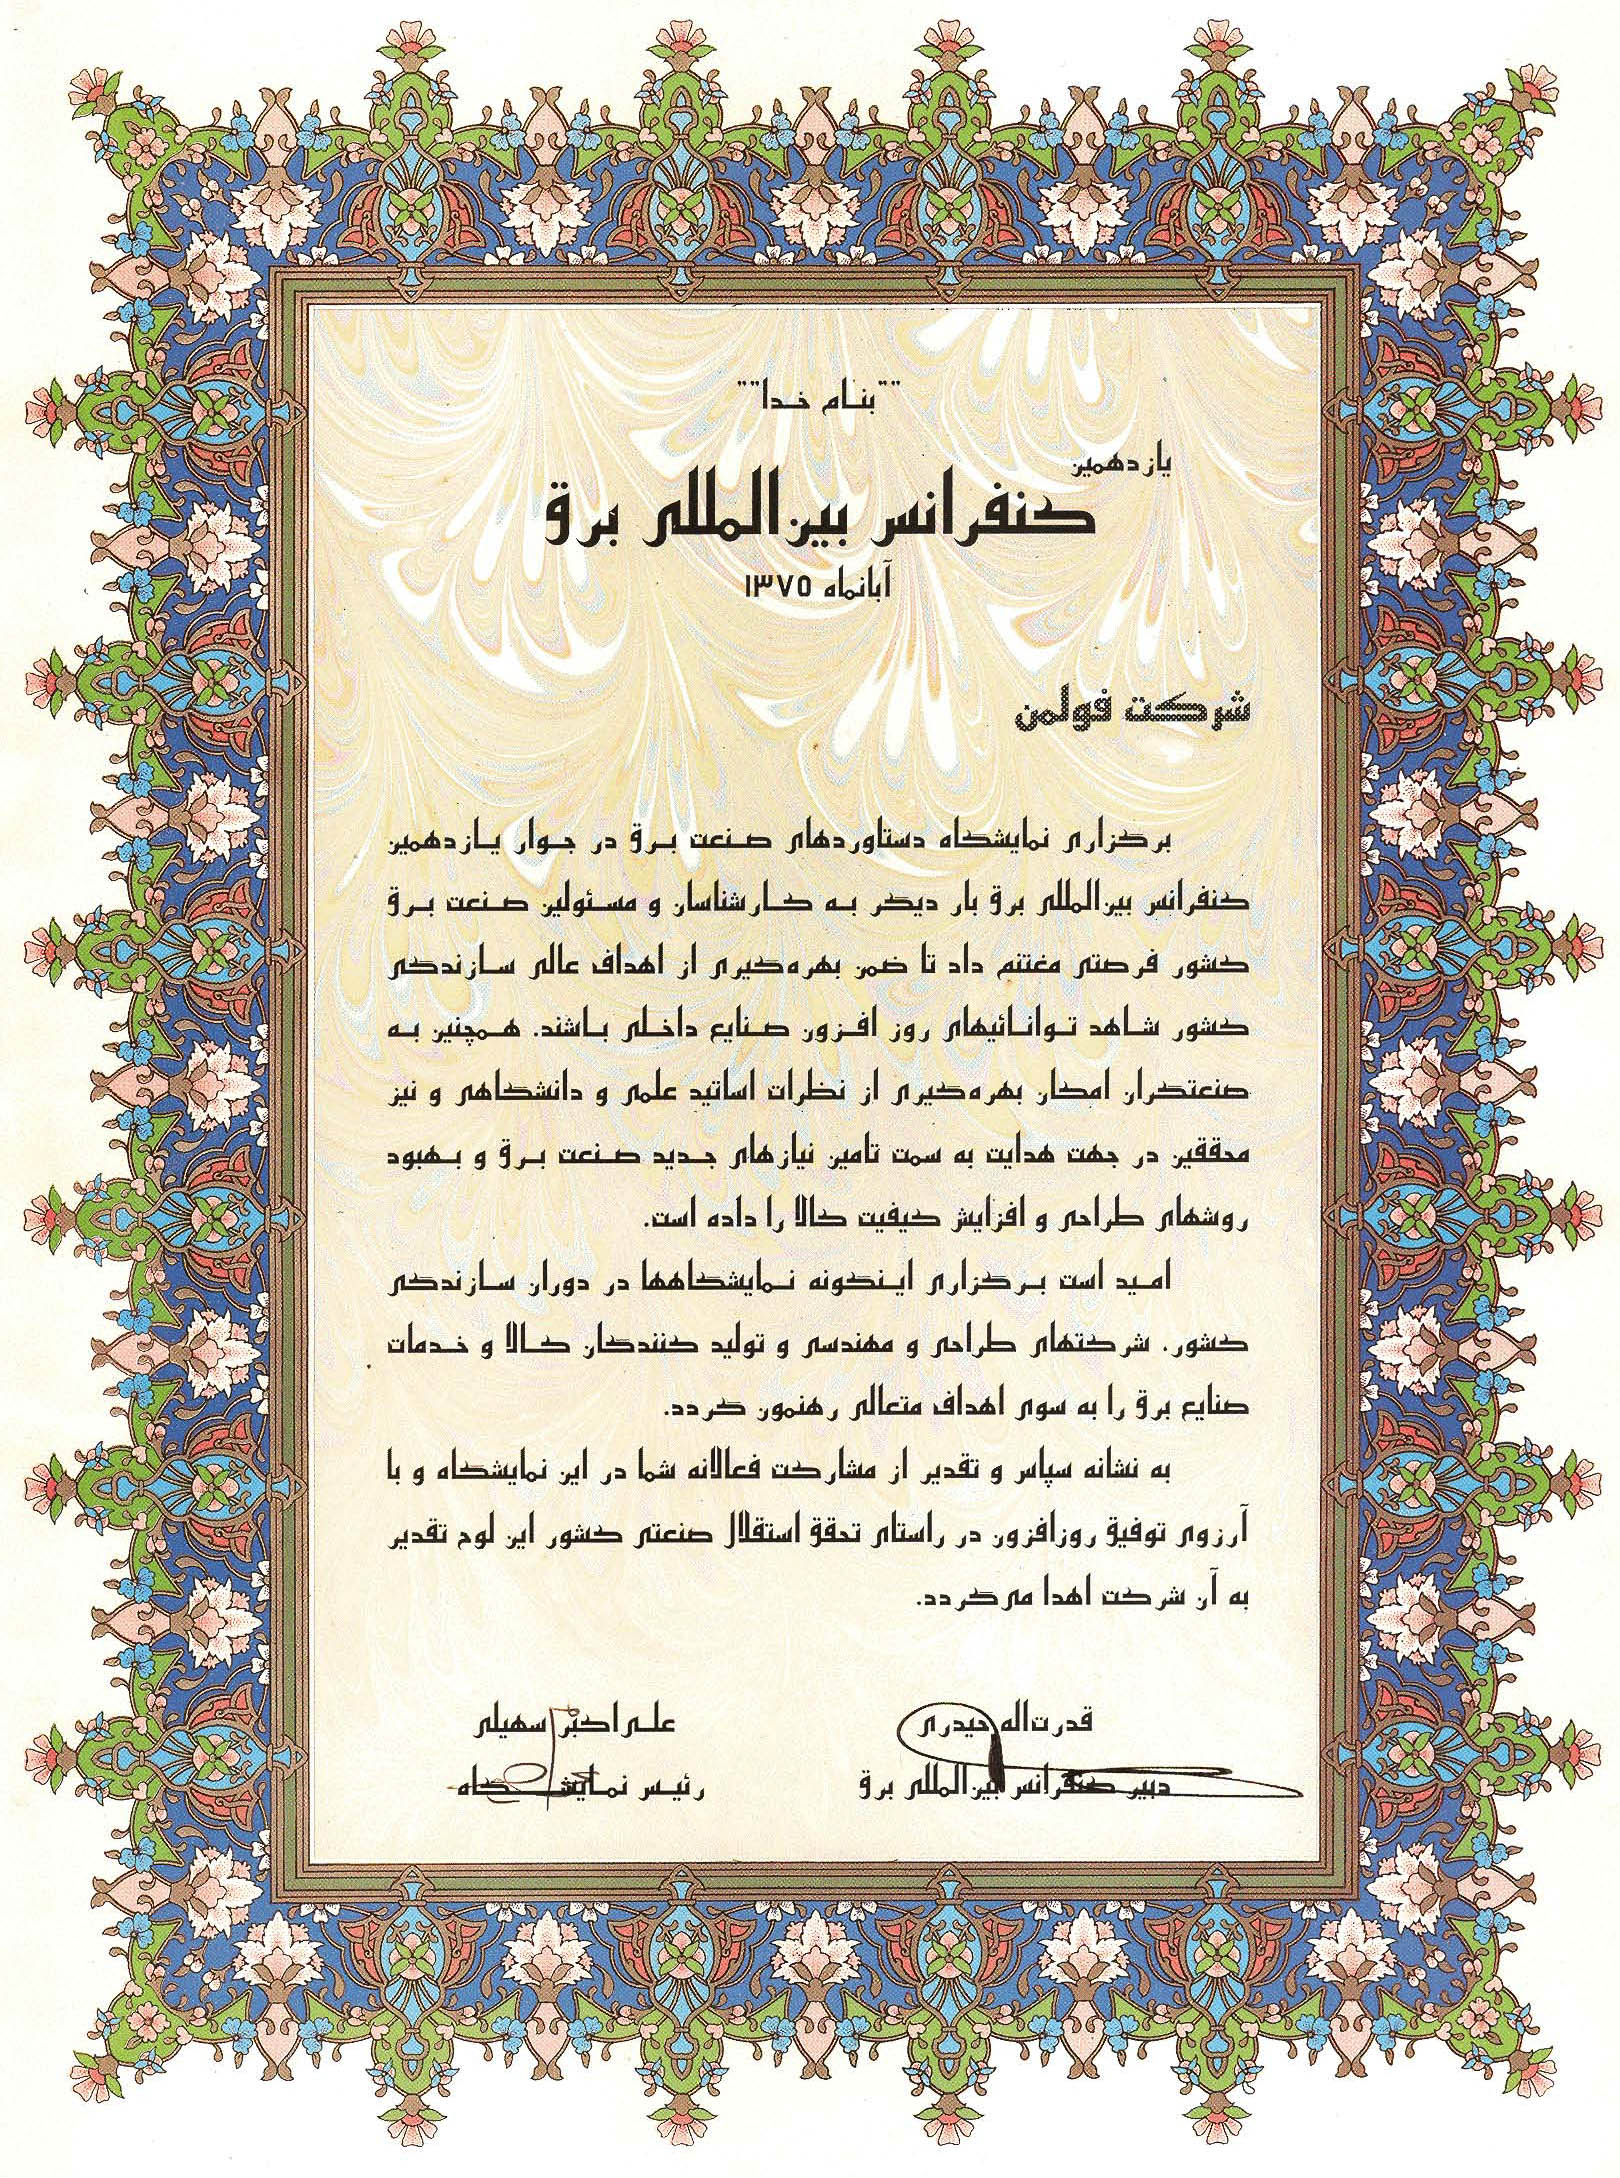 "بنام خدا"
یازدهمین
کنفرانس بین‌المللی برق
آبانماه ۱۳۷۵
شرکت فولمن
برگزاری نمایشگاه دستاوردهای صنعت برق در جوار یازدهمین
کنفرانس بین‌المللی برق بار دیگر به کارشناسان و مسئولین صنعت برق
کشور فرصتی مغتنم داد تا ضمن بهره‌گیری از اهداف عالی سازندگی
کشور شاهد توانائیهای روز افزون صنایع داخلی باشند. همچنین به
صنعتگران امکان بهره‌گیری از نظرات اساتید علمی و دانشگاهی و نیز
محققین در جهت هدایت به سمت تامین نیازهای جدید صنعت برق و بهبود
روشهای طراحی و افزایش کیفیت کالا را داده است.
امید است برگزاری اینگونه نمایشگاهها در دوران سازندگی
کشور، شرکتهای طراحی و مهندسی و تولید کنندگان کالا و خدمات
صنایع برق را به سوی اهداف متعالی رهنمون گردد.
به نشانه سپاس و تقدیر از مشارکت فعالانه شما در این نمایشگاه و با
آرزوی توفیق روزافزون در راستای تحقق استقلال صنعتی کشور این لوح تقدیر
به آن شرکت اهدا می‌گردد.
قدرت‌اله حیدری
دبیر کنفرانس بین‌المللی برق
علی‌اکبر سهیلی
رئیس نمایشگاه